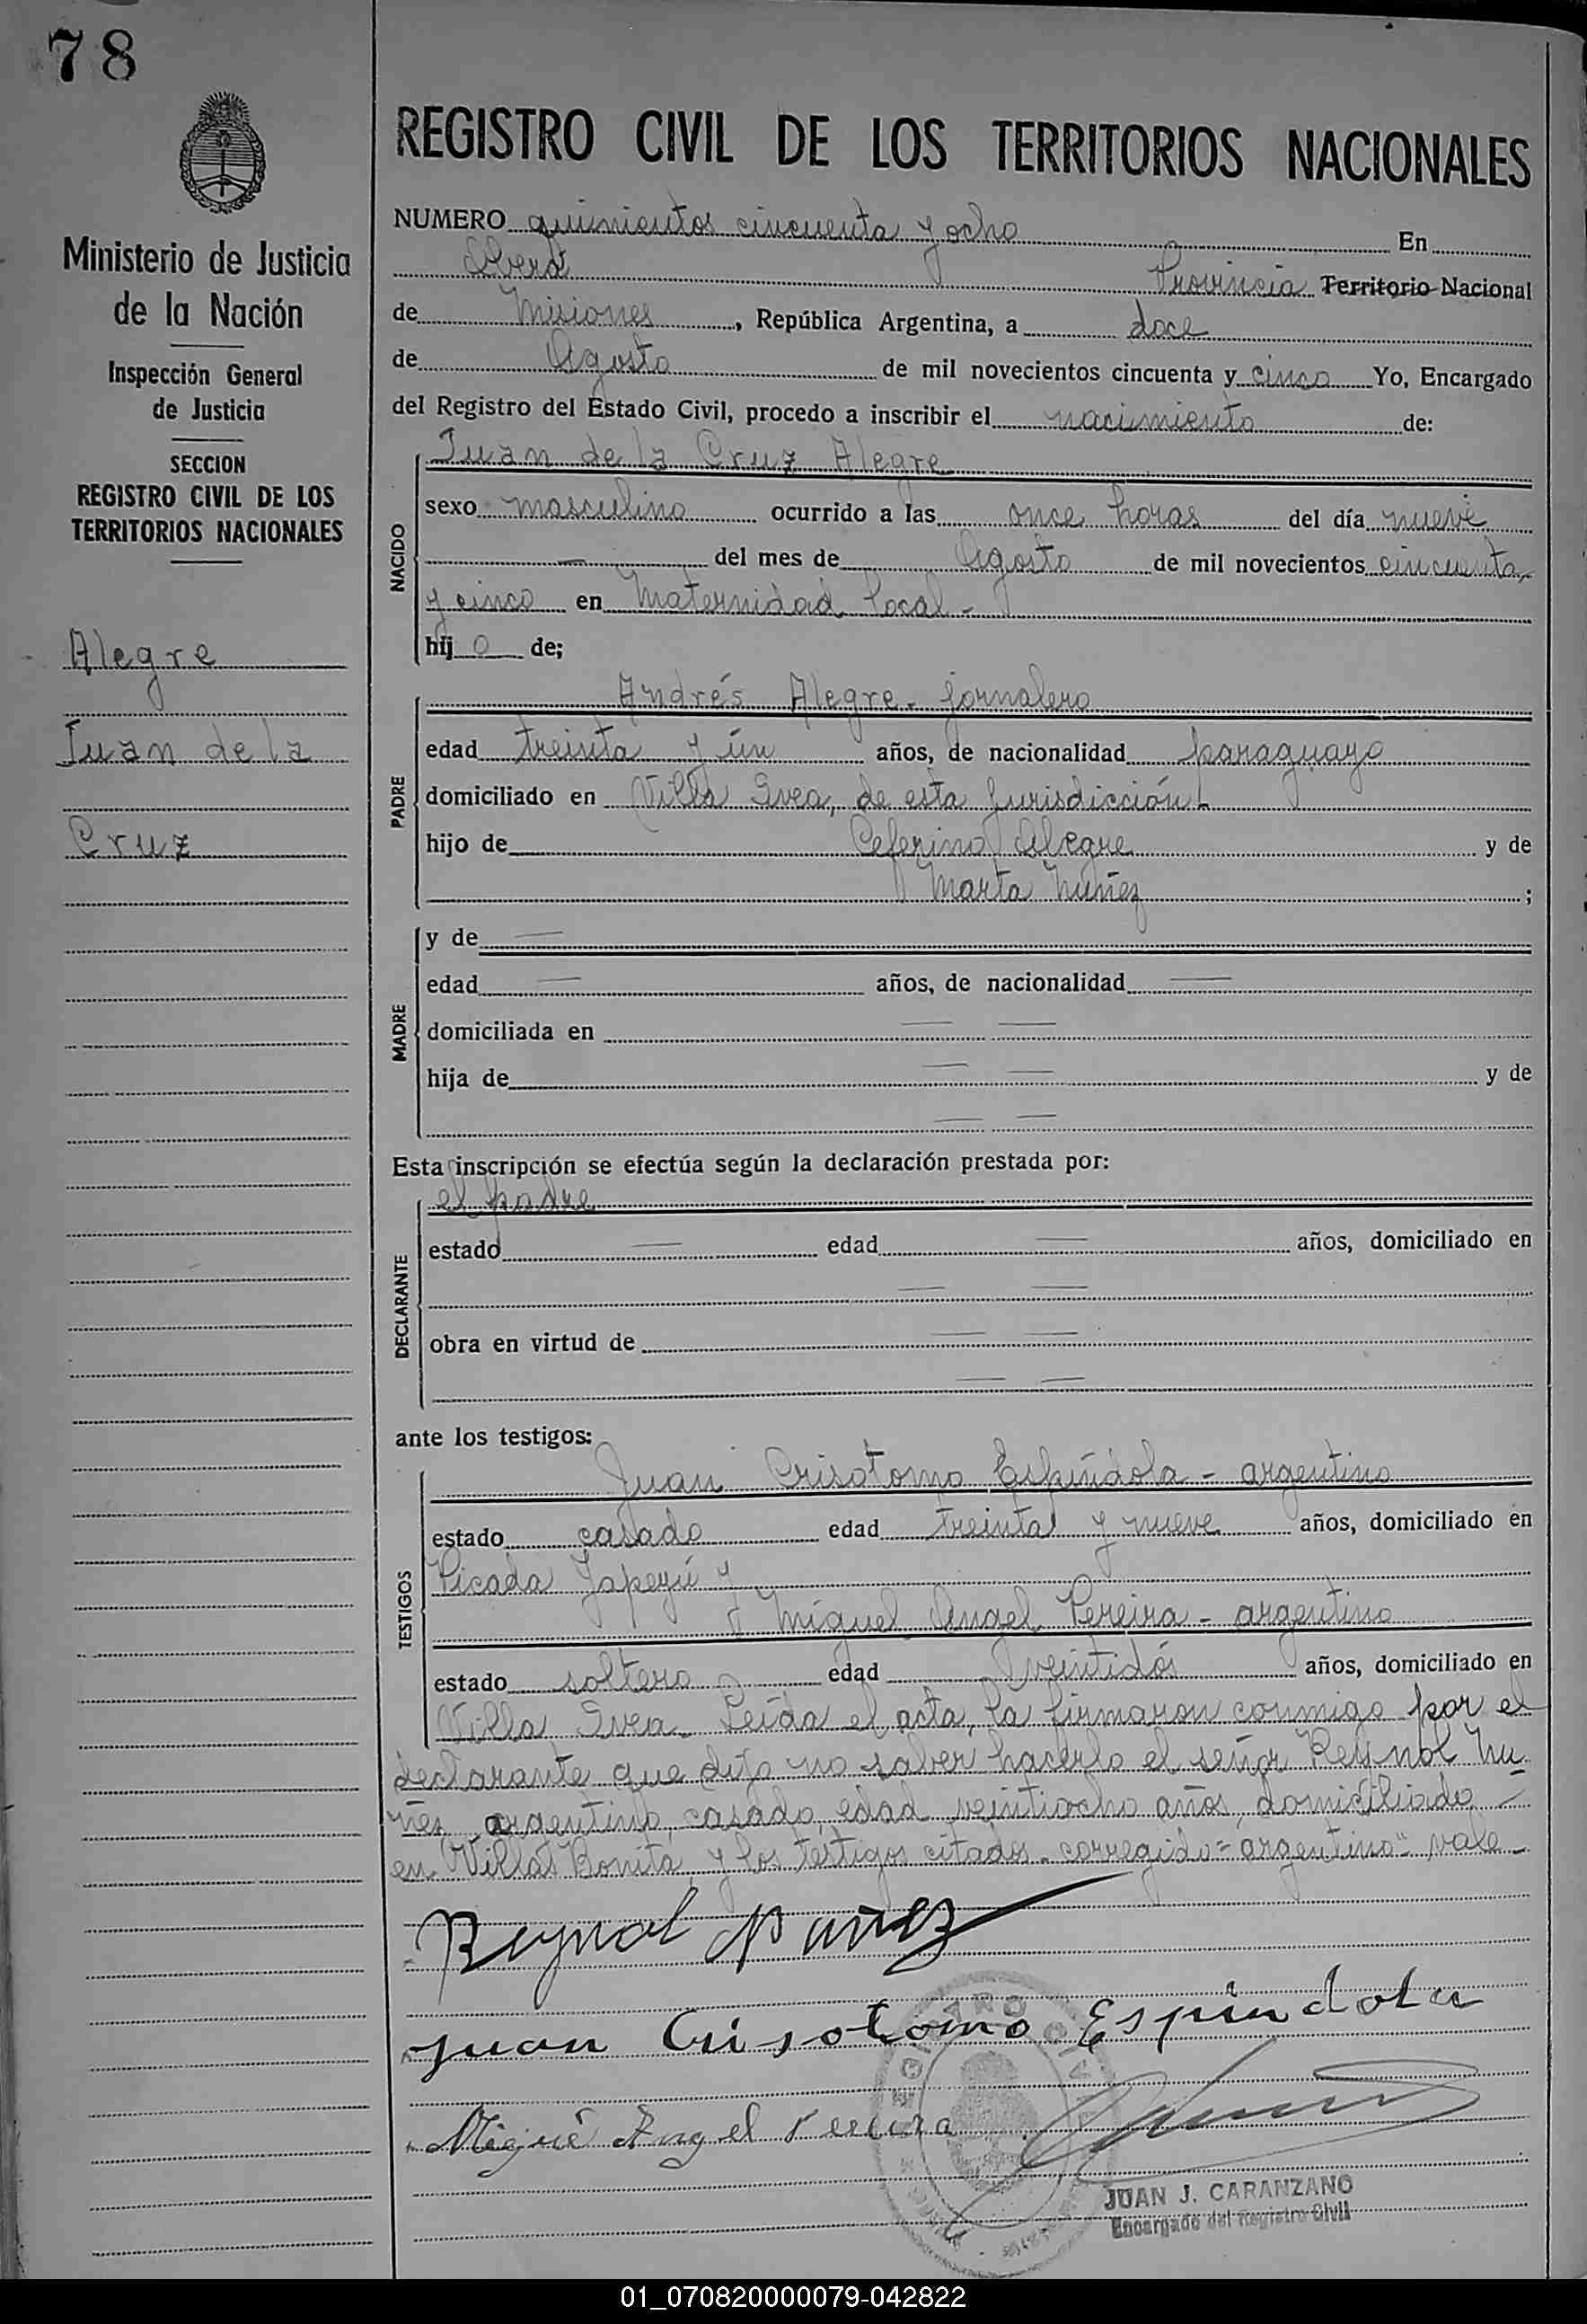 78
Ministerio de Justicia
de la Nación
Inspección General
de Justicia
SECCION
REGISTRO CIVIL DE LOS
TERRITORIOS NACIONALES
Alegre
Juan de la
Cruz
REGISTRO CIVIL DE LOS TERRITORIOS NACIONALES
NUMERO quinientos cincuenta y ocho En
Oberá Provincia Territorio Nacional
de Misiones, República Argentina, a doce
de Agosto de mil novecientos cincuenta y cinco Yo, Encargado
del Registro del Estado Civil, procedo a inscribir el nacimiento de:
NACIDO
Juan de la Cruz Alegre
sexo masculino ocurrido a las once horas del día nueve
— del mes de Agosto de mil novecientos cincuenta
y cinco en Maternidad Local -
hijo de;
PADRE
Andrés Alegre - jornalero
edad treinta y ún años, de nacionalidad paraguayo
domiciliado en Villa Svea, de esta jurisdicción -
hijo de Ceferino Alegre y de
Marta Nuñez ;
MADRE
y de —
edad — años, de nacionalidad —
domiciliada en — —
hija de — — y de
— —
Esta inscripción se efectúa según la declaración prestada por:
DECLARANTE
el padre
estado — edad — años, domiciliado en
— —
obra en virtud de — —
— —
ante los testigos:
TESTIGOS
Juan Crisotomo Espíndola - argentino
estado casado edad treinta y nueve años, domiciliado en
Picada Yapeyú y
Miguel Angel Pereira - argentino
estado soltero edad veintidós años, domiciliado en
Villa Svea. Leída el acta, la firmaron conmigo por el
declarante que dijo no saber hacerlo el señor Reynol Nu
ñez argentino, casado, edad veintiocho años, domiciliado -
en Villa Bonita, y los testigos citados. corregido = "argentino" vale -
Reynol Nuñez
Juan Crisotomo Espindola
Migué Angel Pereira
JUAN J. CARANZANO
Encargado del Registro Civil
01_070820000079-042822